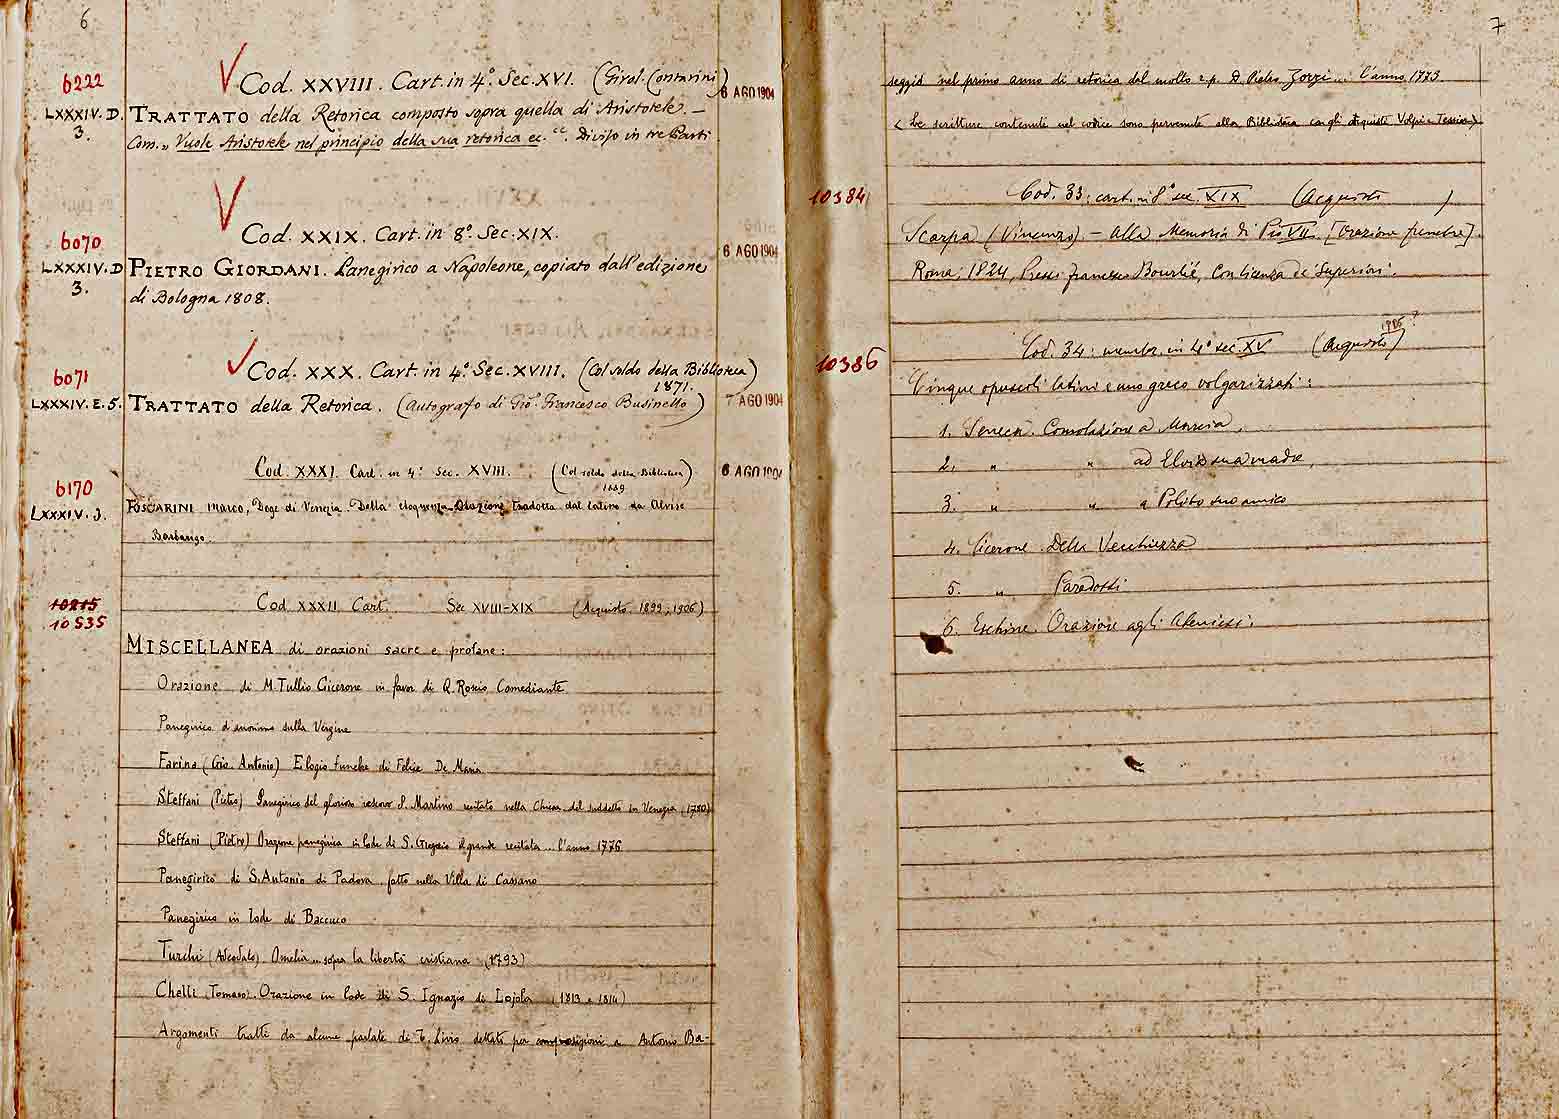 6
6222
Cod. XXVIII. Cart. in 4º. Sec. XVI. (Girol. Contarini)
6 AGO 1904
LXXXIV. D. 3.
TRATTATO della Retorica composto sopra quella di Aristotele. –
Com. „ Vuole Aristotele nel principio della sua retorica ec. ec. Diviso in tre Parti
Cod. XXIX. Cart. in 8º. Sec. XIX.
6070
6 AGO 1904
LXXXIV. D 3.
PIETRO GIORDANI. Panegirico a Napoleone, copiato dall'edizione
di Bologna 1808.
Cod. XXX. Cart. in 4º. Sec. XVIII. (Col soldo della Biblioteca)
1871.
6071
7 AGO 1904
LXXXIV. E. 5.
TRATTATO della Retorica. (Autografo di Gio. Francesco Businello)
Cod. XXXI. Cart. in 4º. Sec. XVIII. (Col soldo della Biblioteca)
1889
6 AGO 1904
6170
LXXXIV. 3.
FOSCARINI Marco, Doge di Venezia. Della eloquenza. Orazione tradotta dal latino da Alvise
Barbarigo.
10215
10535
Cod. XXXII Cart. Sec XVIII-XIX (Acquisto, 1899; 1906)
MISCELLANEA di orazioni sacre e profane:
Orazione di M. Tullio Cicerone in favor di Q. Roscio Comediante
Panegirico d'anonimo sulla Vergine
Farina (Gio. Antonio) Elogio funebre di Felice De Maria
Steffani (Pietro) Panegirico del glorioso vescovo S. Martino recitato nella Chiesa del suddetto in Venezia (1780)
Steffani (Pietro) Orazione panegirica in lode di S. Gregorio il grande recitata ... l'anno 1776
Panegirico di S. Antonio di Padova fatto nella Villa di Cassano
Panegirico in lode di Baccuco
Turchi (Adeodato) Omelia ... sopra la libertà cristiana (1793)
Chelli (Tomaso). Orazione in lode di S. Ignazio di Lojola (1813 e 1814)
Argomenti tratti da alcune parlate di T. Livio dettati per composizioni a Antonio Ba-
7
seggio nel primo anno di retorica dal molto r. p. D. Pietro Zorzi ... l'anno 1773.
(Le scritture contenute nel codice sono pervenute alla Biblioteca cogli acquisti Volpi e Tessier)
10384
Cod. 33: cart. in 8º sec. XIX (Acquisto )
Scarpa (Vincenzo). – Alla Memoria di Pio VII. [Orazione funebre].
Roma, 1824, Presso Francesco Bourlié, Con licenza de' Superiori.
10386
Cod. 34: membr. in 4º sec. XV (Acquisto)
1906?
Cinque opuscoli latini e uno greco volgarizzati:
1. Seneca. Consolazione a Marcia.
2. „ „ ad Elvia sua madre,
3. „ „ a Polibo suo amico
4. Cicerone. Della Vecchiezza
5. „ Paradossi
6. Eschine. Orazione agli Ateniesi.